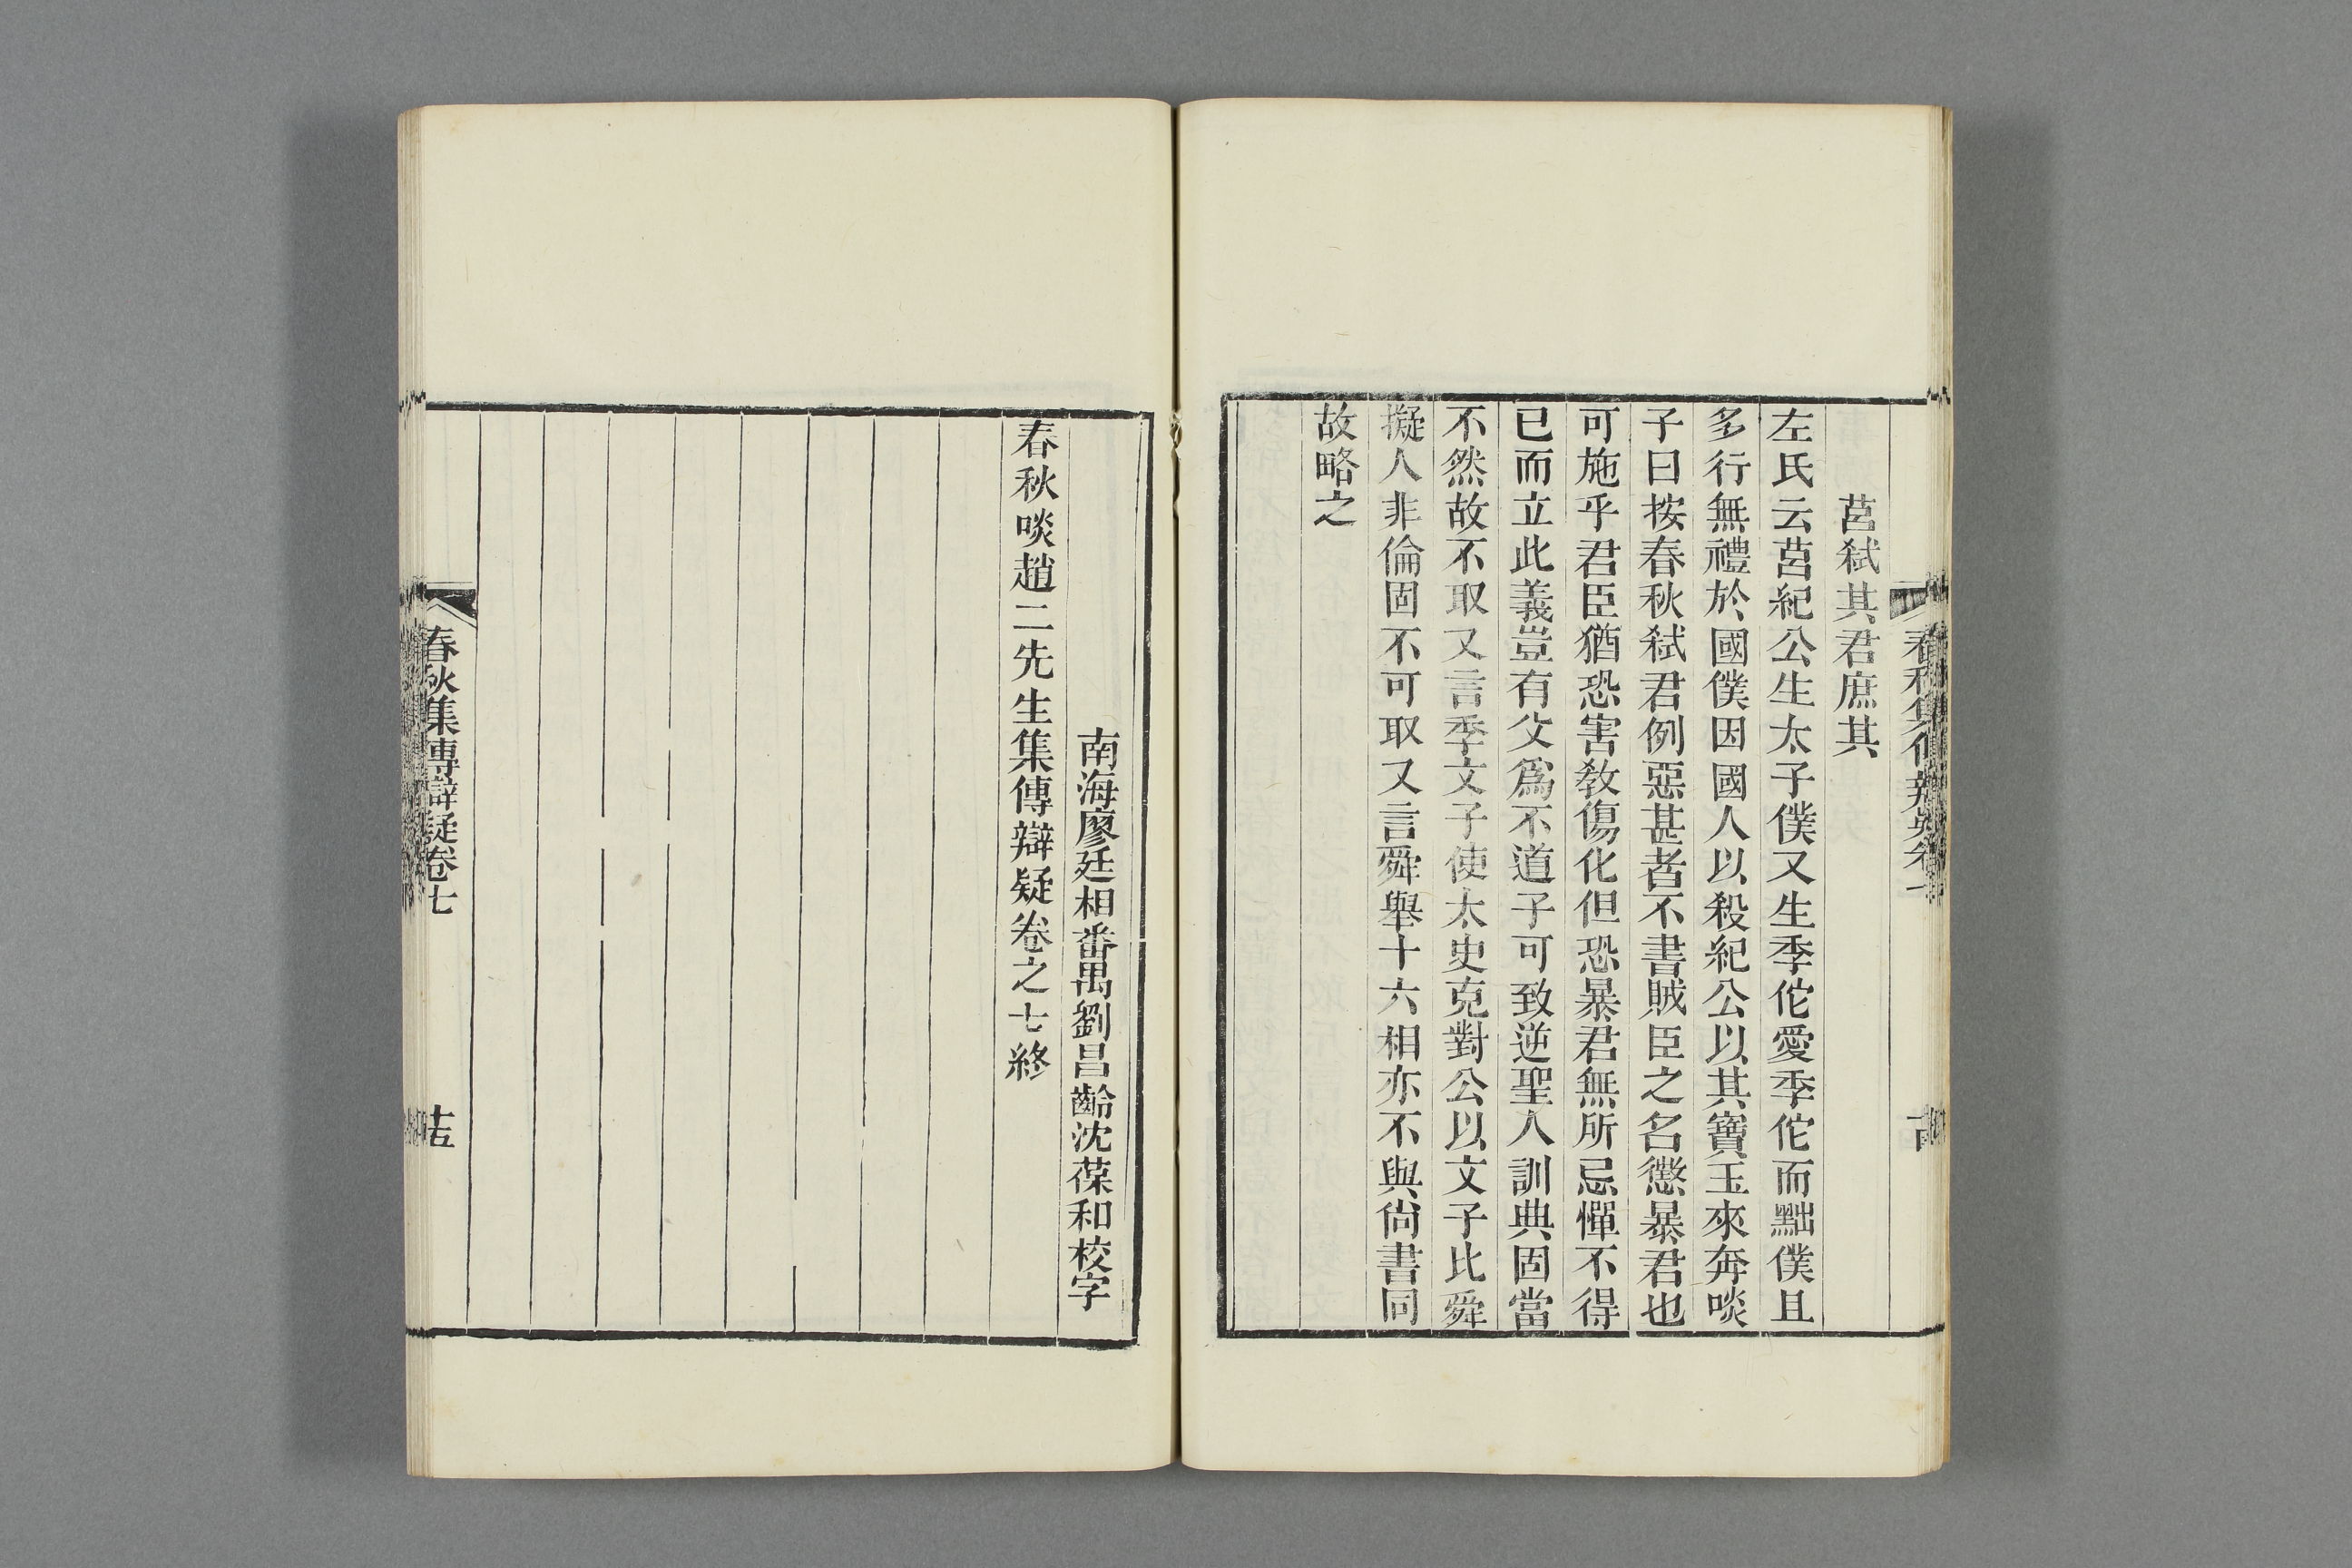 莒弑其君庶其
左氏云莒紀公生太子僕又生季佗愛季佗而黜僕且
多行無禮於國僕因國人以殺紀公以其寶玉來奔啖
子曰按春秋弑君例惡甚者不書賊臣之名懲暴君也
可施乎君臣猶恐害教傷化但恐暴君無所忌憚不得
已而立此義豈有父爲不道子可致逆聖人訓典固當
不然故不取又言季文子使太史克對公以文子比舜
擬人非倫固不可取又言舜舉十六相亦不與尙書同
故略之
南海廖廷相番禺劉昌齡沈葆和校字
春秋啖趙二先生集傳辯疑卷之七終
春秋集傳辯疑卷七